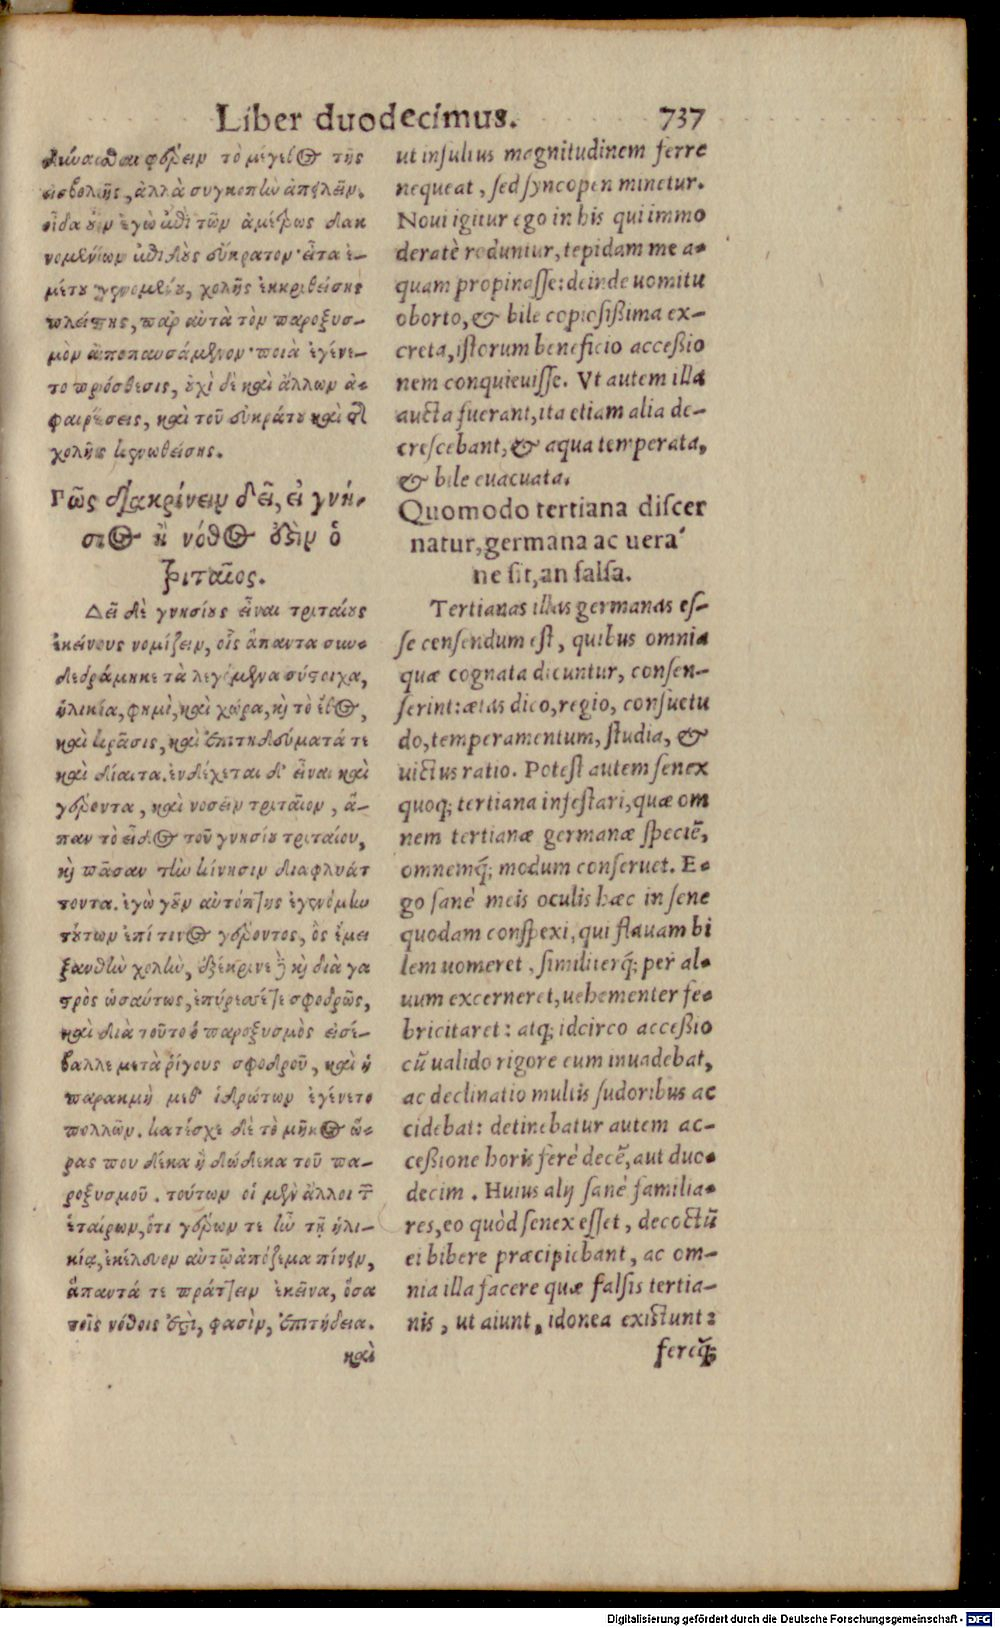 Liber duodecimus. 737
δύνασθαι φέρειν τὸ μέγεθος τῆς
εἰσβολῆς, ἀλλὰ συγκοπὴν ἀπειλεῖν.
οἶδα οὖν ἐγὼ ἐπὶ τῶν ἀμέτρως δακ
νομένων ἐπιδοὺς εὔκρατον· εἶτα ἐ-
μέτου γενομένου, χολῆς ἐκκριθείσης
πλείστης, παρ αὐτὰ τὸν παροξυσ-
μὸν ἀποπαυσάμενον· ποιὰ ἐγένε-
το πρόσθεσις, οὐχὶ δὲ καὶ ἄλλων ἀ-
φαιρέσεις, καὶ τοῦ εὐκράτου καὶ τῆς
χολῆς κενωθείσης.
Πῶς διακρίνειν δεῖ, εἰ γνή-
σιος ἢ νόθος ἐστὶν ὁ
τριταῖος.
Δεῖ δὲ γνησίους εἶναι τριταίους
ἐκείνους νομίζειν, οἷς ἅπαντα συν-
δεδράμηκε τὰ λεγόμενα σύστοιχα,
ἡλικία, φημὶ, καὶ χώρα, καὶ τὸ ἔθος,
καὶ κρᾶσις, καὶ ἐπιτηδεύματά τε
καὶ δίαιτα. ἐνδέχεται δ' εἶναι καὶ
γέροντα, καὶ νοσεῖν τριταῖον, ἅ-
παν τὸ εἶδος τοῦ γνησίου τριταίου,
καὶ πᾶσαν τὴν κίνησιν διαφυλάτ
τοντα. ἐγὼ γοῦν αὐτόπτης ἐγενόμην
τούτων ἐπί τινος γέροντος, ὃς ἔμει
ξανθὴν χολὴν, ἐξέκρινε δὲ καὶ διὰ γα
στρὸς ὡσαύτως, ἐπύρεσσέ τε σφοδρῶς,
καὶ διὰ τοῦτο ὁ παροξυσμὸς εἰσέ-
βαλλε μετὰ ῥίγους σφοδροῦ, καὶ ἡ
παρακμὴ μεθ' ἱδρώτων ἐγένετο
πολλῶν. κατέσχε δὲ τὸ μῆκος ὥ-
ρας που δέκα ἢ δώδεκα τοῦ πα-
ροξυσμοῦ. τούτων οἱ μὲν ἄλλοι τῶν
ἑταίρων, ὅτι γέρων τε ἦν τῇ ἡλι-
κίᾳ, ἐκέλευον αὐτῷ ἀπόζεμα πίνειν,
ἅπαντά τε πράττειν ἐκεῖνα, ὅσα
τοῖς νόθοις ἐστὶ, φασὶν, ἐπιτήδεια.
καὶ
ut insultus magnitudinem ferre
nequeat, sed syncopen minetur.
Noui igitur ego in his qui immo
deratè roduntur, tepidam me a-
quam propinasse: deinde uomitu
oborto, & bile copiosißima ex-
creta, istorum beneficio acceßio
nem conquieuisse. Vt autem illa
aucta fuerant, ita etiam alia de-
crescebant, & aqua temperata,
& bile euacuata.
Quomodo tertiana discer
natur, germana ac uera
ne sit, an falsa.
Tertianas illas germanas es-
se censendum est, quibus omnia
quæ cognata dicuntur, consen-
serint: ætas dico, regio, consuetu
do, temperamentum, studia, &
uictus ratio. Potest autem senex
quoq; tertiana infestari, quæ om
nem tertianæ germanæ speciē,
omnemq́; modum conseruet. E-
go sanè meis oculis hæc in sene
quodam conspexi, qui flauam bi
lem uomeret, similiterq́; per al-
uum excerneret, uehementer fe-
bricitaret: atq; idcirco acceßio
cū ualido rigore eum inuadebat,
ac declinatio multis sudoribus ac
cidebat: detinebatur autem ac-
ceßione horis ferè decē, aut duo-
decim. Huius alij sanè familia-
res, eo quòd senex esset, decoctū
ei bibere præcipiebant, ac om-
nia illa facere quæ falsis tertia-
nis, ut aiunt, idonea existunt:
fereq́;
Digitalisierung gefördert durch die Deutsche Forschungsgemeinschaft - DFG